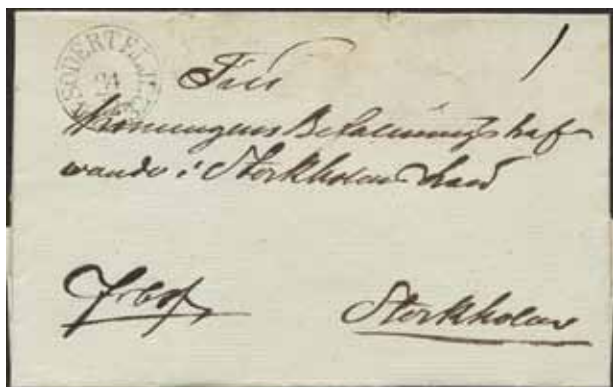 SÖDERTELJE
24
1
Till
Konungens Befallningshaf
wande i Stockholms Län
Stockholm